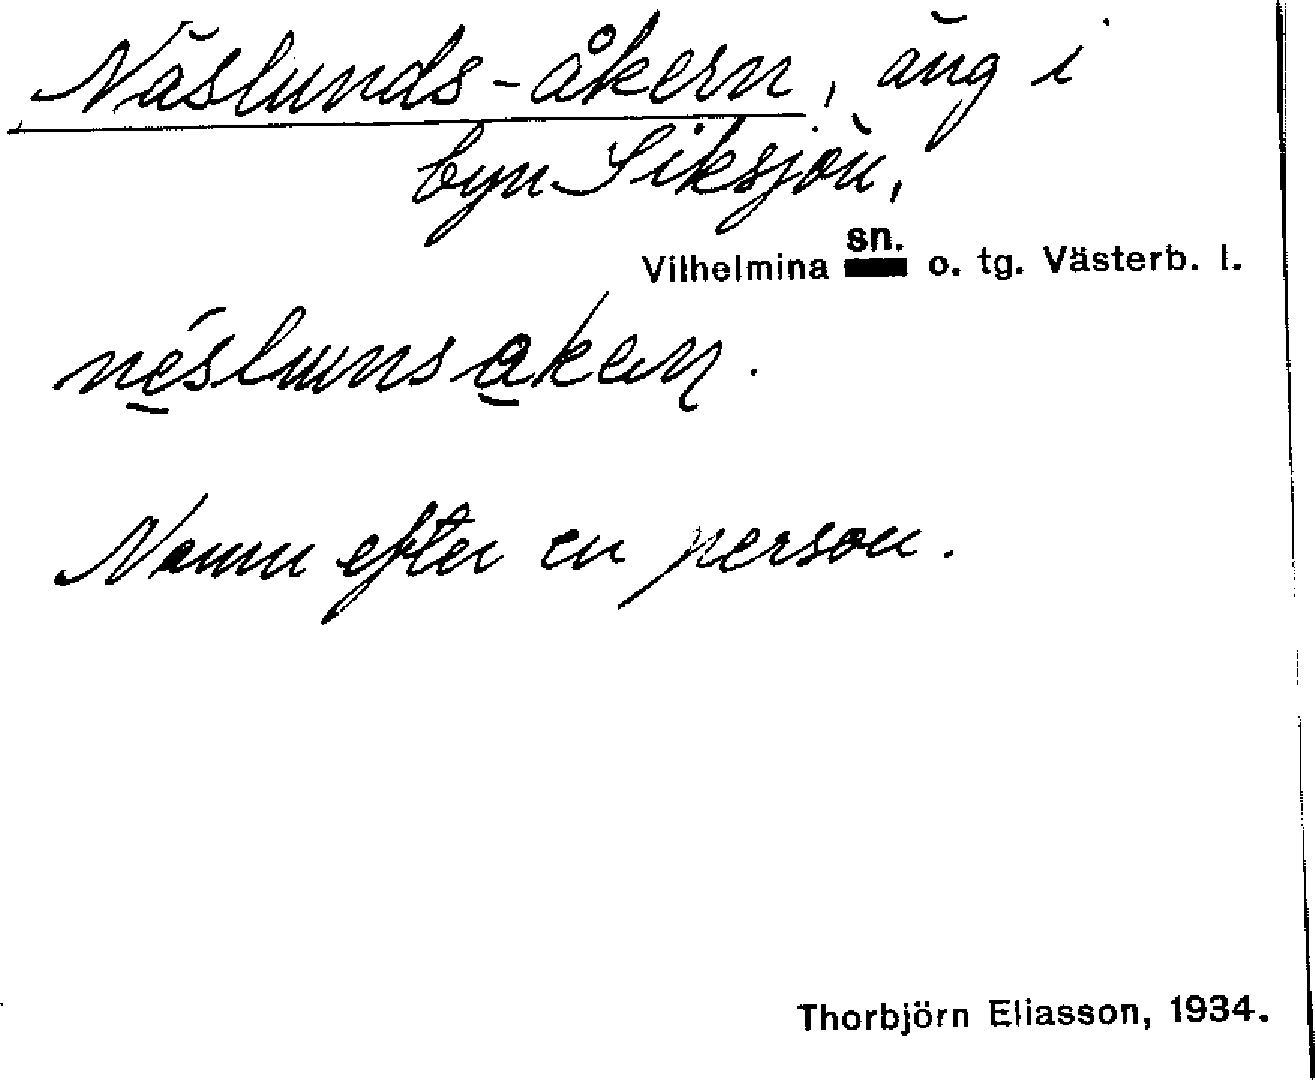 Näslunds-åkern, äng i
byn Siksjön,
Vilhelmina sn. o. tg. Västerb. l.
Namn efter en person.
Thorbjörn Eliasson, 1934.